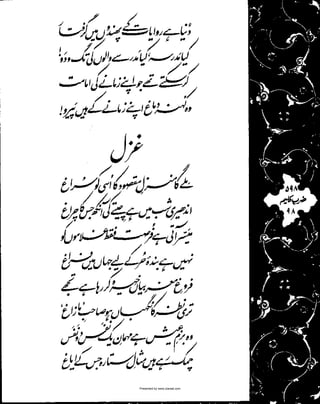 دُنیا ہے روایات کے پھندوں میں گرفتار
کیا مدرسہ، کیا مدرسے والوں کی تگ و دَو!
کر سکتے تھے جو اپنے زمانے کی امامت
وہ کہنہ دماغ اپنے زمانے کے ہیں پَیرو!
غزل
ملے گا منزلِ مقصود کا اُسی کو سُراغ
اندھیری شب میں ہے چیتے کی آنکھ جس کا چراغ
میّسر آتی ہے فرصت فقط غلاموں کو
نہیں ہے بندۂ حُر کے لیے جہاں میں فراغ
فروغِ مغربیاں خیرہ کر رہا ہے تجھے
تری نظر کا نگہباں ہو صاحبِ 'مازاغ'
وہ بزمِ عیش ہے مہمانِ یک نفَس دو نفَس
چمک رہے ہیں مثالِ ستارہ جس کے ایاغ
۵۹۸
ضربِ کلیم
۹۸